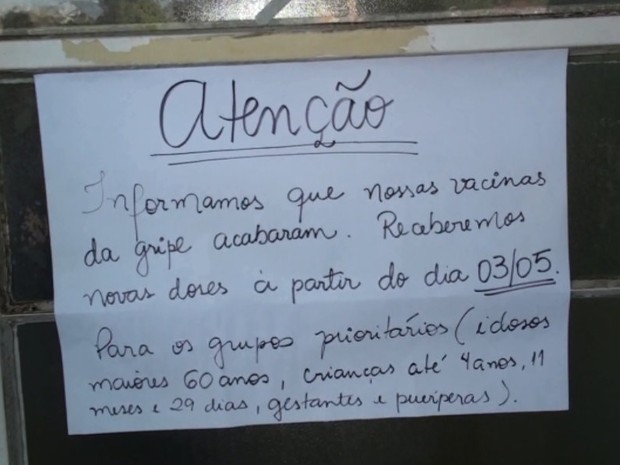 Atenção
Informamos que nossas vacinas
da gripe acabaram. Receberemos
novas doses à partir do dia 03/05.
Para os grupos prioritários (idosos
maiores 60 anos, crianças até 4 anos, 11
meses e 29 dias, gestantes e puérperas).